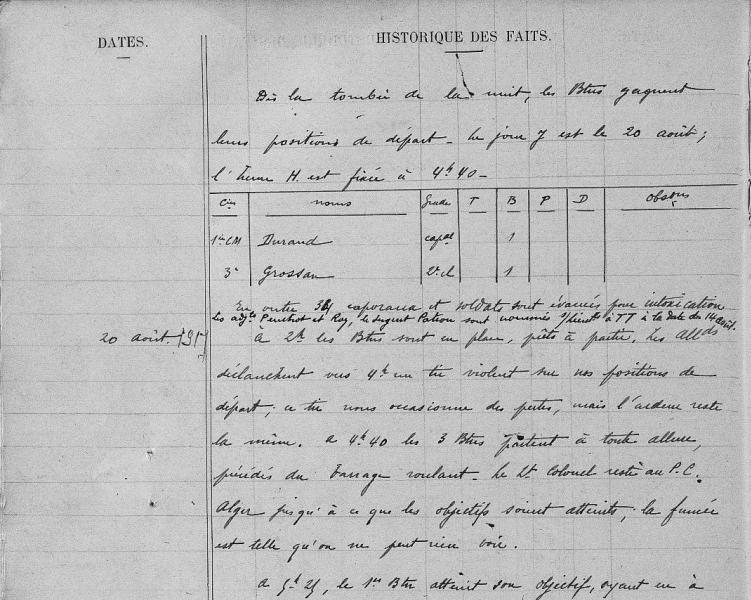 DATES.
HISTORIQUE DES FAITS.
Dès la tombée de la nuit, les Btns gagnent
leurs positions de départ - Le jour J est le 20 août ;
l'heure H. est fixée à 4h 40 -
Cies noms Grade T B P D Obsons
1re CM Durand capal 1
3e Grossan 2e cl 1
En outre 34 caporaux et soldats sont évacués pour intoxication
Les adjts et Roy, le sergent Patron sont nommés s/Lieuts à TT à la date du 14 août.
20 août 1917
à 2h les Btns sont en place, prêts à partir, les Allds
déclanchent vers 4h un tir violent sur nos positions de
départ ; ce tir nous occasionne des pertes, mais l'ardeur reste
la même. A 4h 40 les 3 Btns partent à toute allure,
précédés du barrage roulant - Le Lt Colonel reste au P.C.
Alger jusqu'à ce que les objectifs soient atteints ; la fumée
est telle qu'on ne peut rien voir.
A 5h 25, le 1er Btn atteint son objectif, ayant eu à